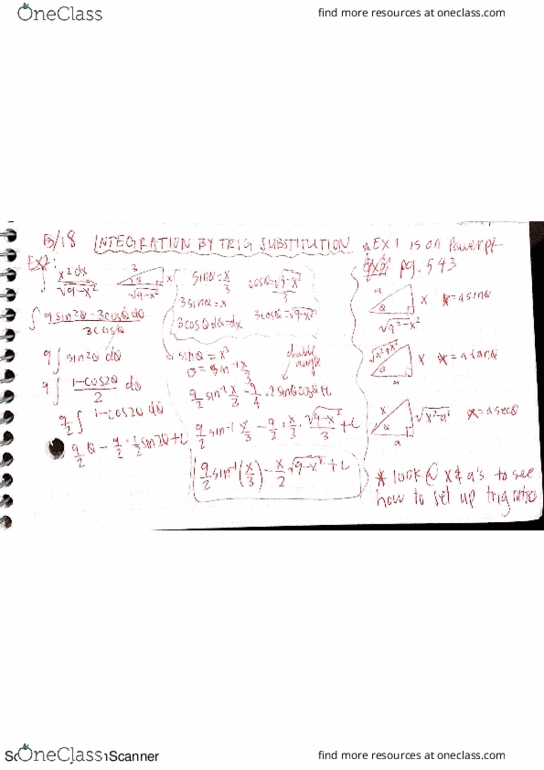 OneClass
find more resources at oneclass.com
3/18 INTEGRATION BY TRIG SUBSTITUTION * EX 1 IS ON Powerpt
pg. 543
EX2:
∫ x² dx / √9-x²
3 x θ √9-x²
sinθ = x/3
cosθ = √9-x² / 3
3sinθ = x
3cosθ = √9-x²
3cosθdθ = dx
∫ 9 sin²θ · 3cosθ dθ / 3cosθ
9 ∫ sin²θ dθ
9 ∫ 1-cos2θ / 2 dθ
9/2 ∫ 1-cos2θ dθ
9/2 θ - 9/2 · 1/2 sin2θ + C
θ = sin⁻¹ x/3
double angle
9/2 sin⁻¹ x/3 - 9/4 · 2 sinθcosθ + C
9/2 sin⁻¹ x/3 - 9/2 · x/3 · √9-x² / 3 + C
9/2 sin⁻¹(x/3) - x/2 √9-x² + C
a x θ √a²-x² x = a sinθ
√a²+x² x θ a x = a tanθ
x √x²-a² θ a x = a secθ
* look @ x & a's to see
how to set up trig ratios
OneClass
Scanner
find more resources at oneclass.com